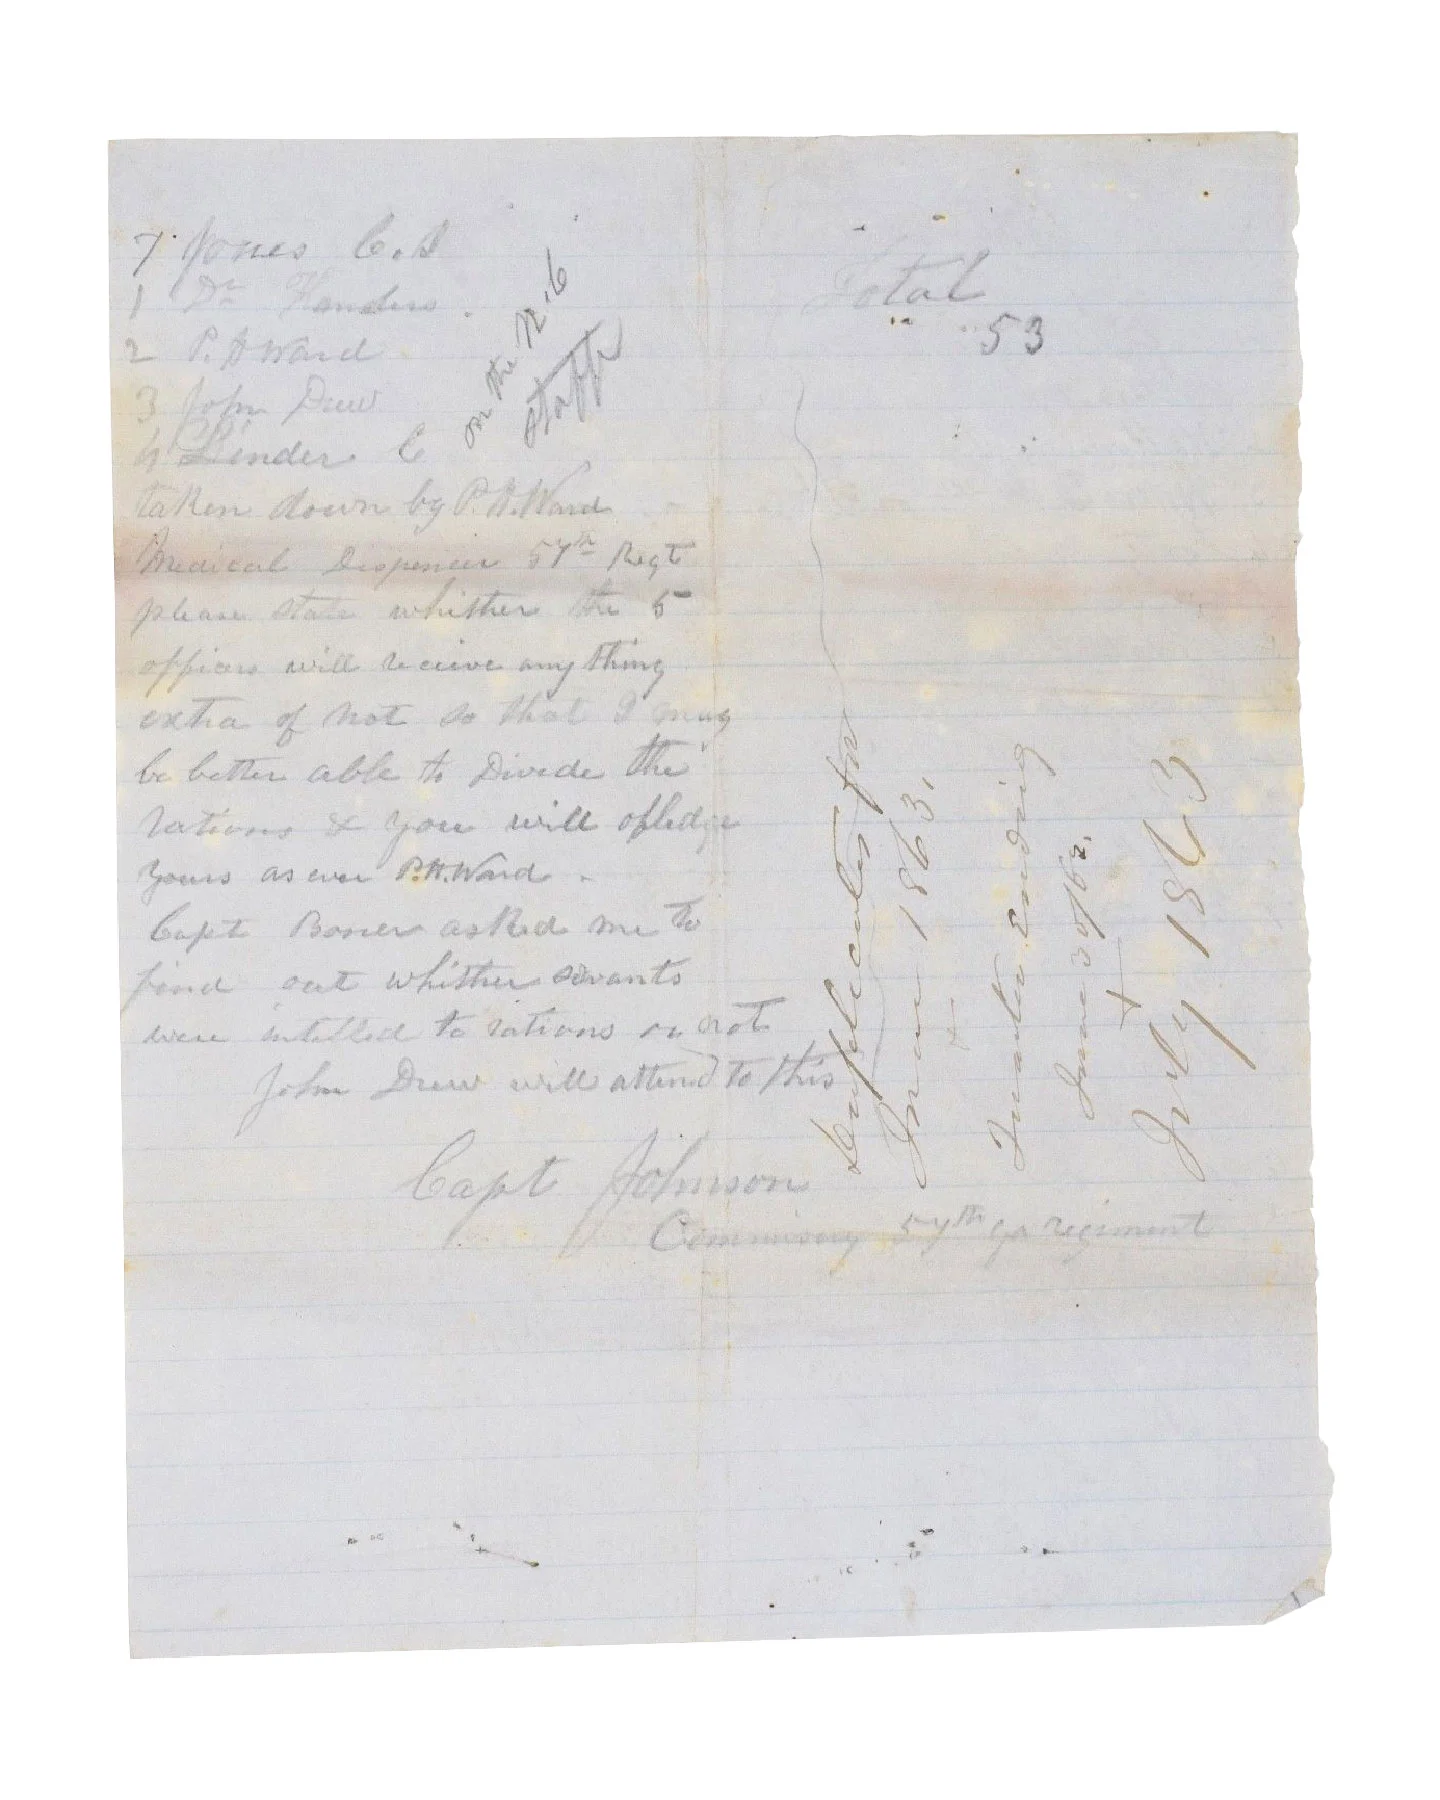 7 Jones C. S
1 Dr Flanders
2 P. H Ward
3 John Drew
4 Linder C
on the N. C
staff
Total
53
taken down by P. H. Ward
Medical Dispencer 57th Regt
please state whither the 5
officers will recieve any thing
extra of not so that I may
be better able to Divide the
rations & you will oblidge
yours as ever P. H. Ward
Capt Boner asked me to
find out whither servants
were intelled to rations or not
John Drew will attend to this
Capt Johnson
Commisary 57th ga regiment
Duplicates for
June 1863,
+
Quarter Ending
June 30/63.
+
July 1863